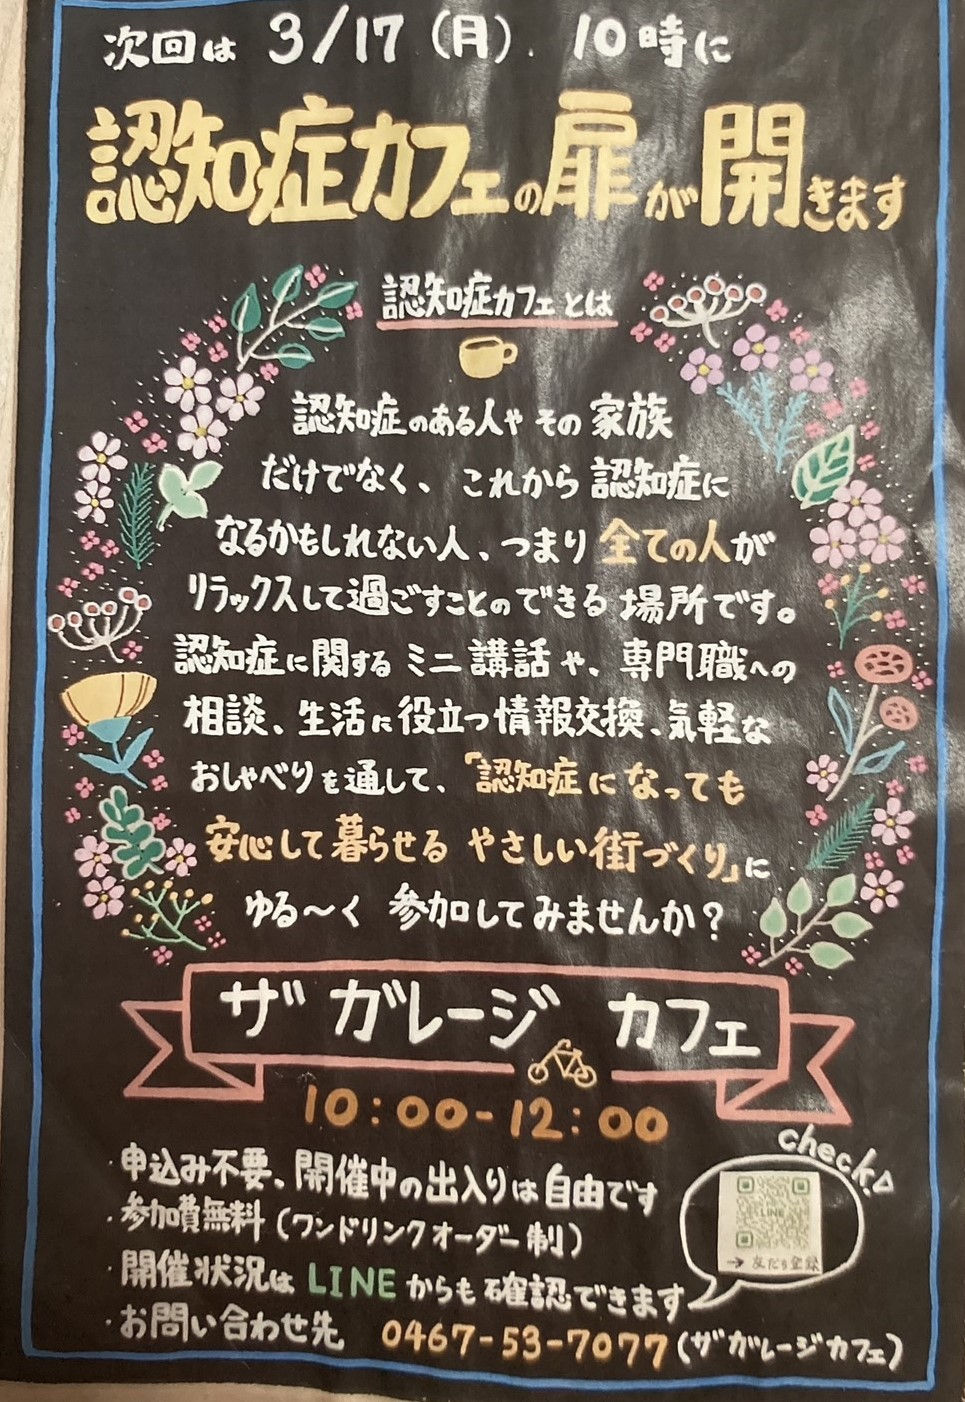 次回は 3/17（月）. 10時に
認知症カフェの扉が開きます
認知症カフェとは
認知症のある人や その 家族
だけでなく、これから 認知症に
なるかもしれない人、つまり 全ての人が
リラックスして過ごすことのできる 場所です。
認知症に関する ミニ講話や、専門職への
相談、生活に役立つ情報交換、気軽な
おしゃべりを通して、「認知症になっても
安心して暮らせる やさしい街づくり」に
ゆる〜く 参加してみませんか？
ザ ガレージ カフェ
10:00-12:00
check
・申込み不要、開催中の出入りは自由です
・参加費無料（ワンドリンクオーダー制）
LINE
→ 友だち登録
・開催状況は LINE からも確認できます
・お問い合わせ先 0467-53-7077（ザガレージカフェ）